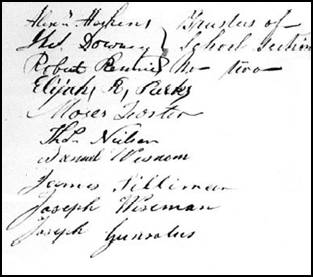 Alexr Hopkins } Trustees of
Jas. Downey } School Section
Robert Rennie } No two
Elijah R, Parks
Moses Foster
Thos. Neilson
Daniel Wismom
James Silliman
Joseph Wiseman
Joseph Gunsolus